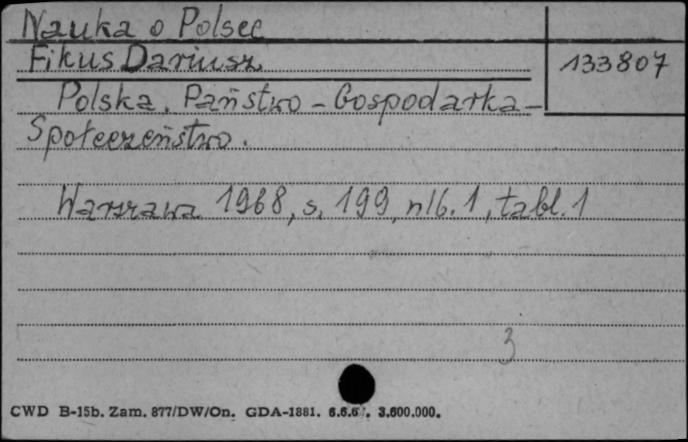 Nauka o Polsce
Fikus Dariusz
133807
Polska. Państwo - Gospodarka -
Społeczeństwo.
Warszawa 1968, s. 199, nlb. 1, tabl. 1
3
CWD B-15b. Zam. 877/DW/On. GDA-1881. 3.600.000.